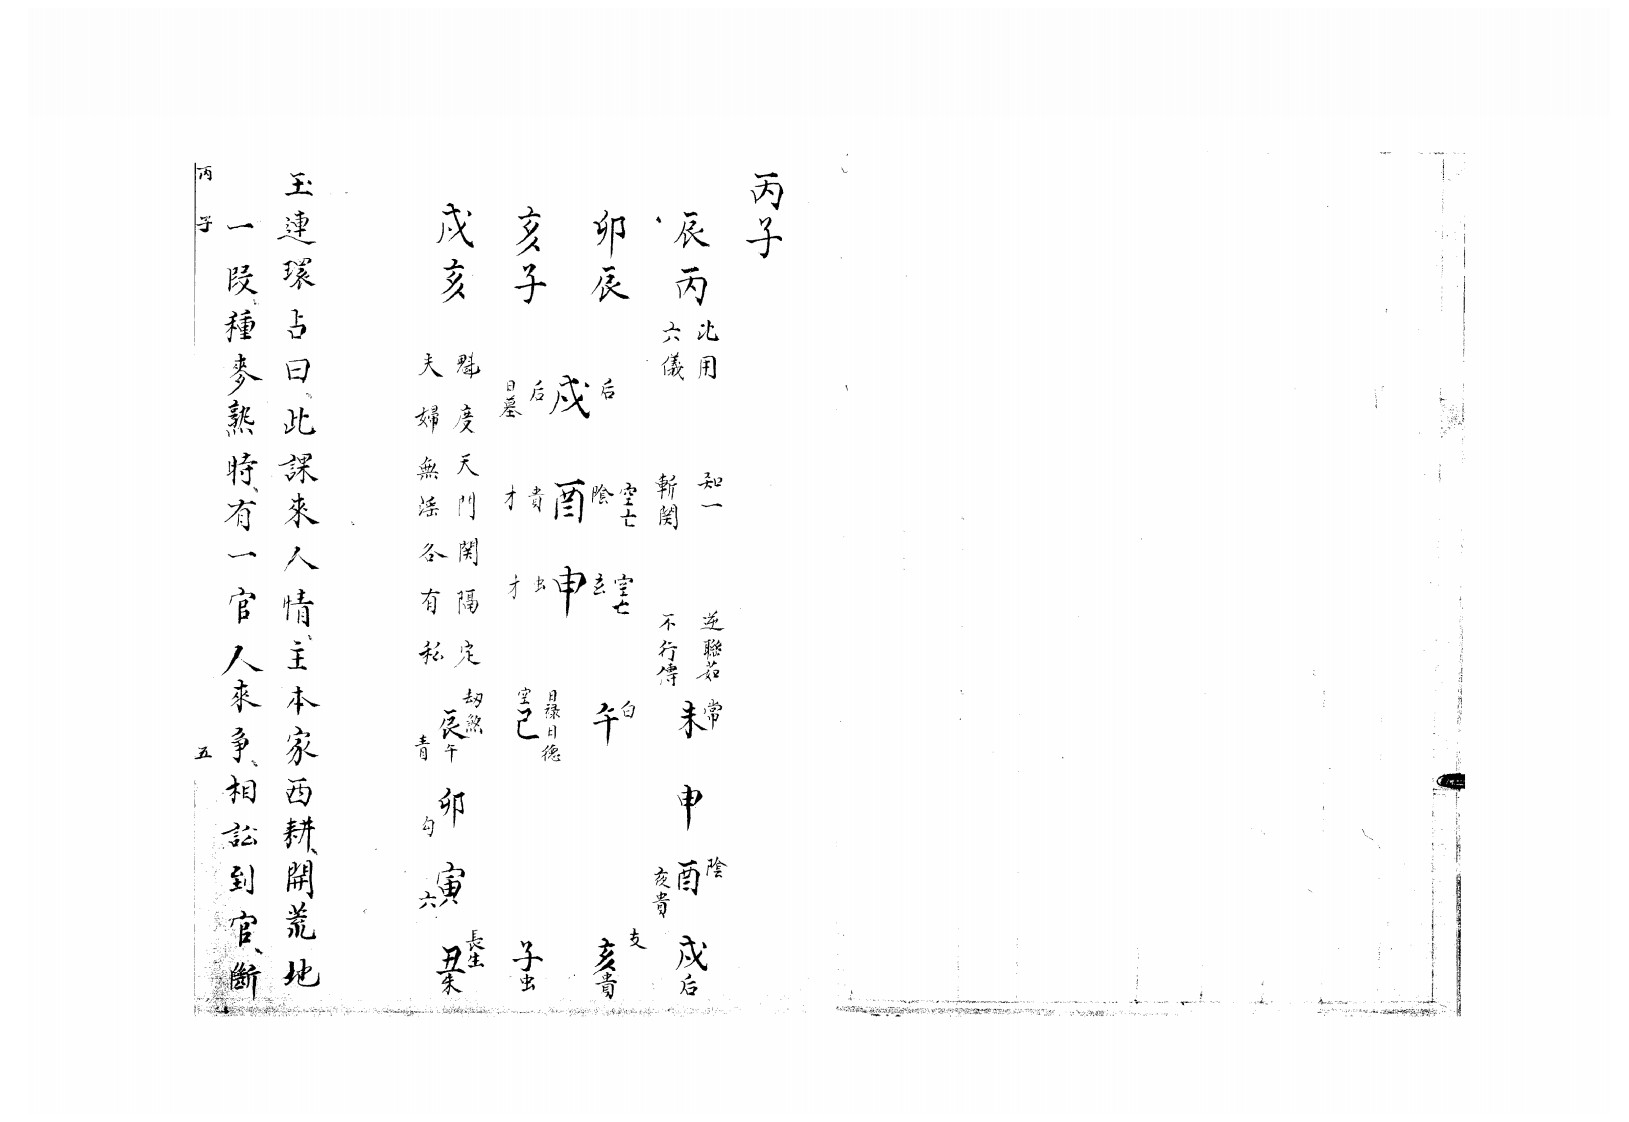 丙子
辰丙
比用
六儀
知一
斬関
逆聯茹
不行傳
卯辰
亥子
戌亥
后
戌
后
日墓
空亡
陰
酉
貴
才
空亡
玄
申
虫
才
魁度天門関隔定
夫婦無淫各有私
常
未
申
陰
酉
亥貴
戌
后
白
午
支
亥
貴
日禄日德
空
巳
子
虫
劫煞
辰
午
青
卯
勾
寅
六
長生
丑
朱
玉連環占曰、此課來人情、主本家西耕、開荒地
一段、種麥熟時、有一官人來爭、相訟到官、斷
丙子
五